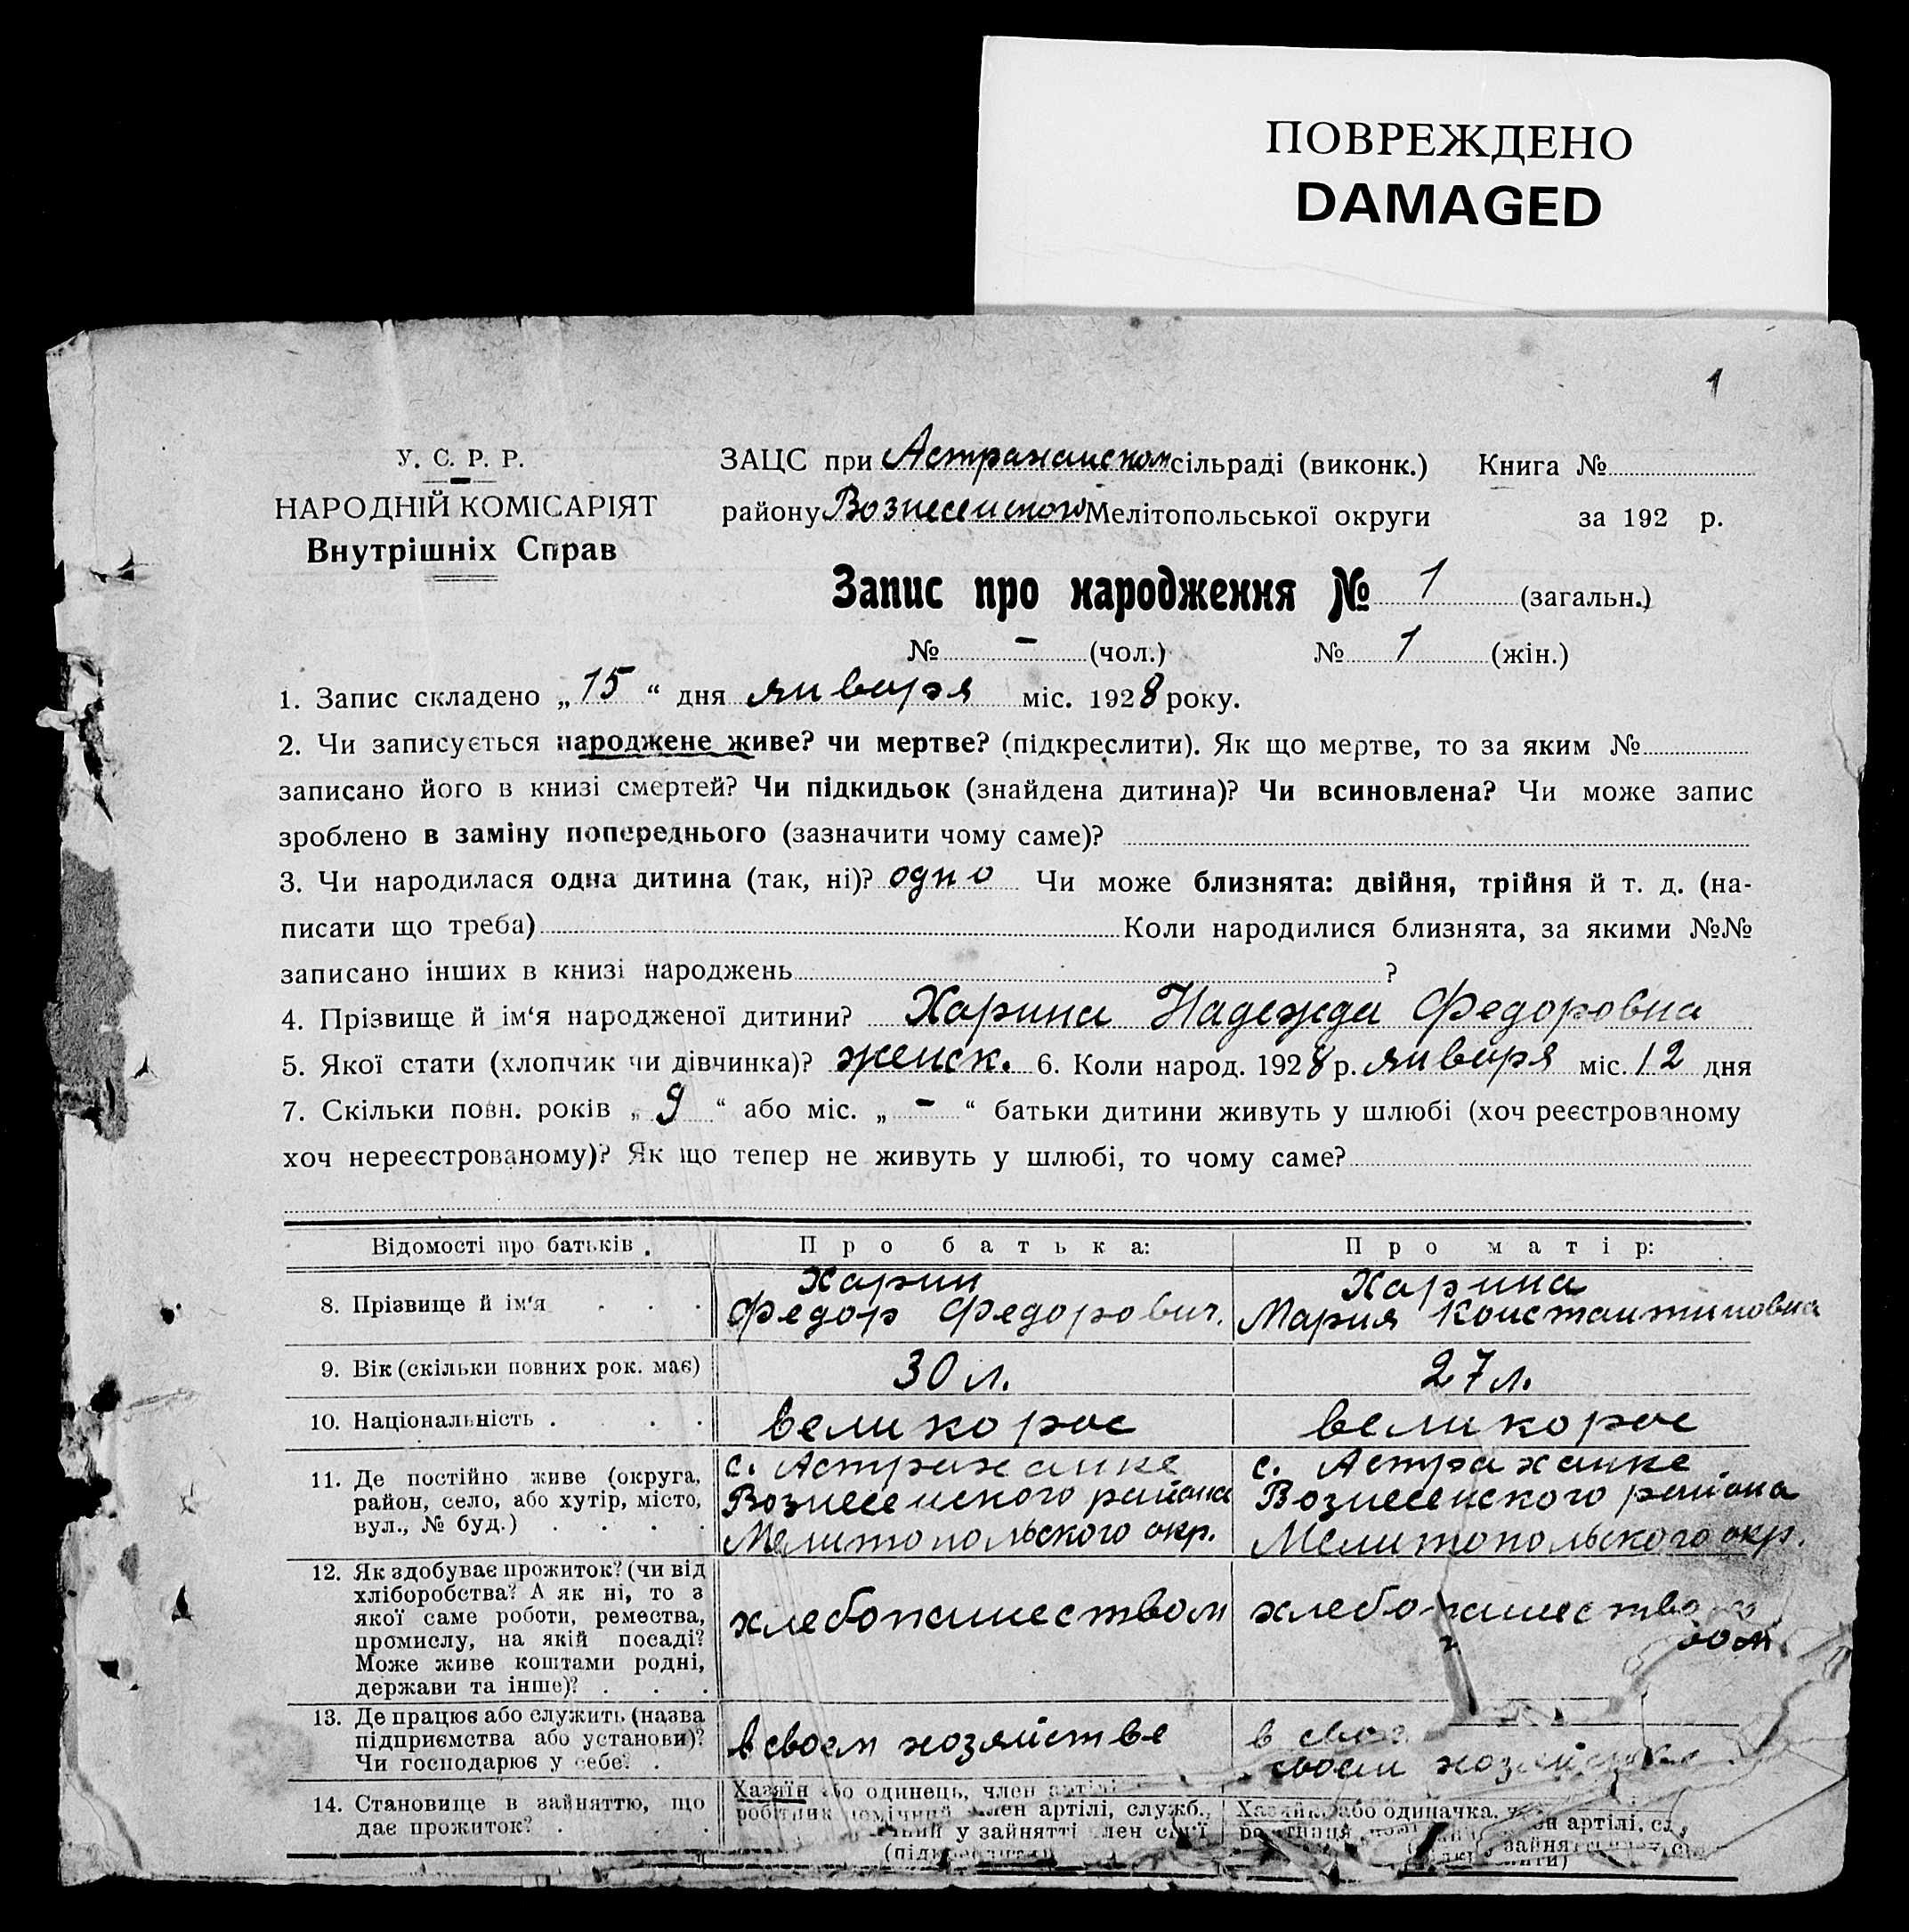 ПОВРЕЖДЕНО
DAMAGED
1
У. С. Р. Р.
НАРОДНІЙ КОМІСАРІЯТ
Внутрішніх Справ
ЗАЦС при Астраханском сільраді (виконк.) Книга №
району Вознесенского Мелітопольської округи за 192 р.
Запис про народження № 1 (загальн.)
№ - (чол.) № 1 (жін.)
1. Запис складено „15“ дня января міс. 1928 року.
2. Чи записується народжене живе? чи мертве? (підкреслити). Як що мертве, то за яким №
записано його в книзі смертей? Чи підкидьок (знайдена дитина)? Чи всиновлена? Чи може запис
зроблено в заміну попереднього (зазначити чому саме)?
3. Чи народилася одна дитина (так, ні)? одно Чи може близнята: двійня, трійня й т. д. (на-
писати що треба) Коли народилися близнята, за якими №№
записано інших в книзі народжень ?
4. Прізвище й ім‘я народженої дитини? Харина Надежда Федоровна
5. Якої стати (хлопчик чи дівчинка)? женск. 6. Коли народ. 1928 р. января міс. 12 дня
7. Скільки повн. років „9“ або міс. „-“ батьки дитини живуть у шлюбі (хоч реєстрованому
хоч нереєстрованому)? Як що тепер не живуть у шлюбі, то чому саме?
Відомості про батьків. Про батька: Про матір:
8. Прізвище й ім‘я . . .
Харин
Федор Федорович.
Харина
Мария Константиновна
9. Вік (скільки повних рок. має) 30 л. 27 л.
10. Національність . . . великорос великорос
11. Де постійно живе (округа,
район, село, або хутір, місто,
вул., № буд.) . . . .
с. Астраханке
Вознесенского района
Мелитопольского окр.
с. Астраханке
Вознесенского района
Мелитопольского окр.
12. Як здобуває прожиток? (чи від
хліборобства? А як ні, то з
якої саме роботи, ремества,
промислу, на якій посаді?
Може живе коштами родні,
держави та інше)? . . .
хлебопашеством
хлебопашество
вом
13. Де працює або служить (назва
підприємства або установи)?
Чи господарює у себе? .
в своем хозяйстве
в свое
своем хозяйстве
14. Становище в зайняттю, що
дає прожиток? . .
Хазяїн або одинець, член артілі
робітник член артілі, служб.,
у зайнятті член сім'ї
Хазяйка або одиначка,
артілі, сл